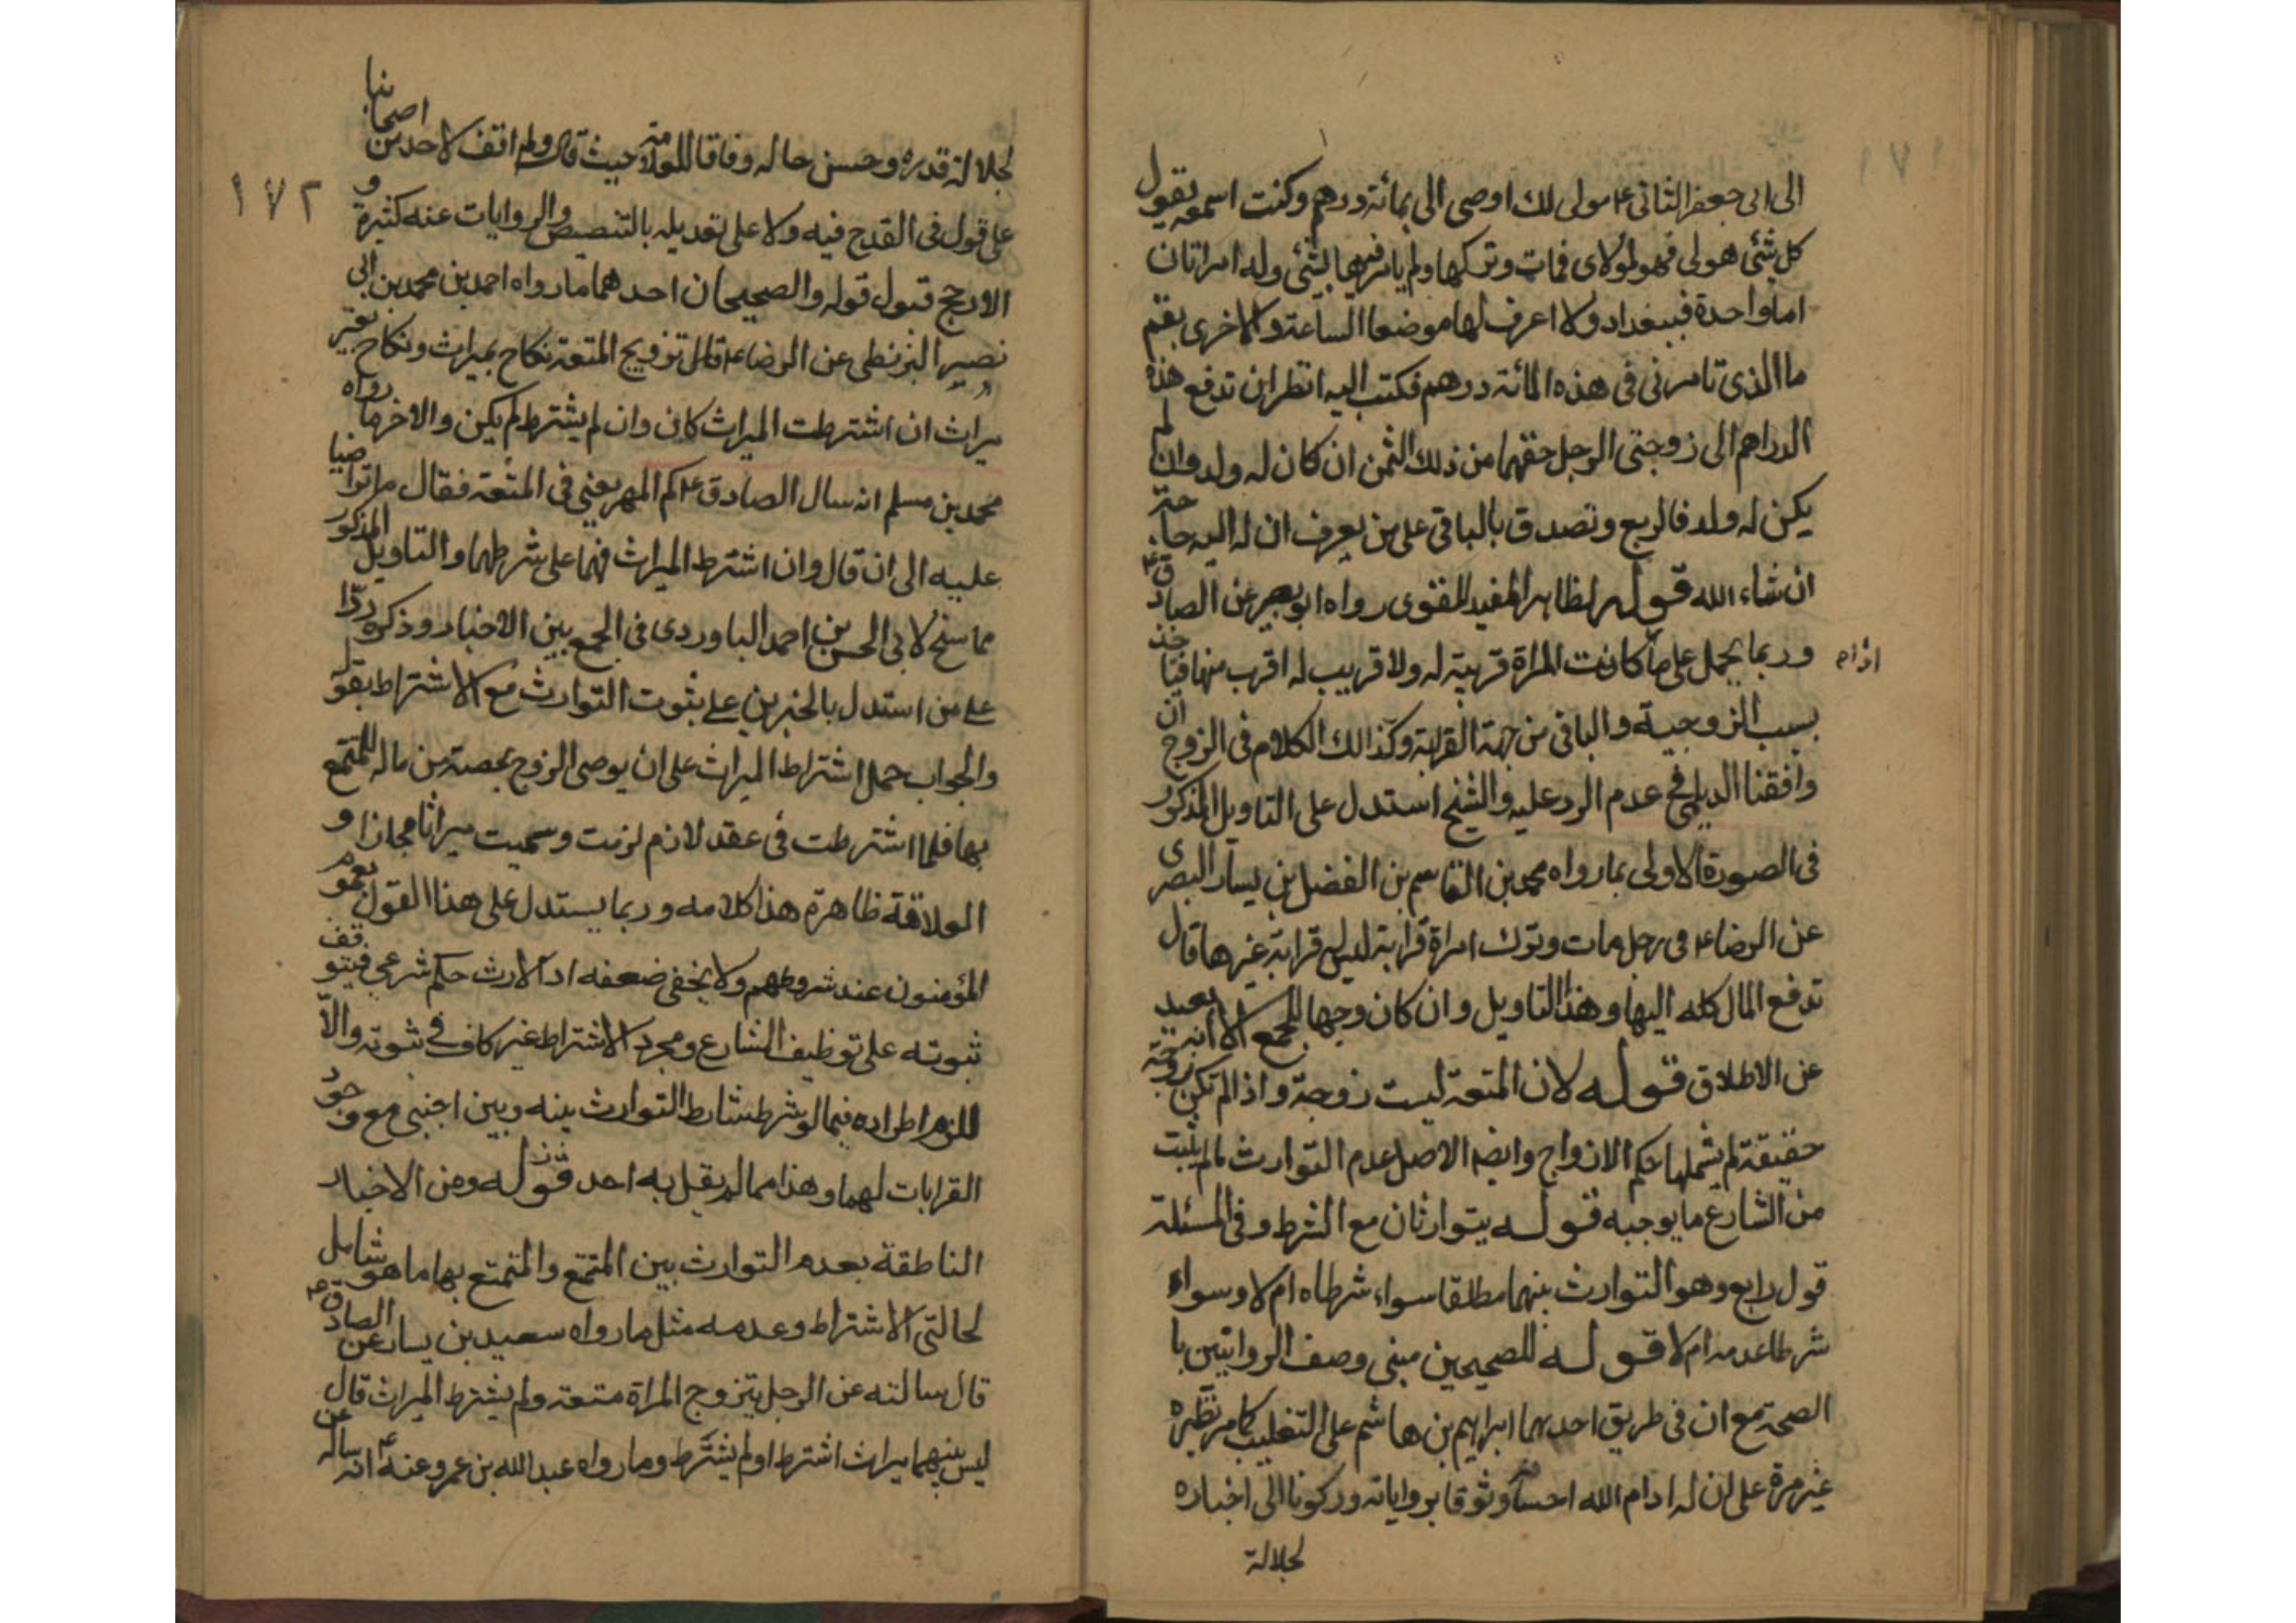 ١٧١
الى ابى جعفر الثانى ع مولى لك اوصى الى بمائة درهم وكنت اسمعه يقول
كل شئ هو لى فهو لمولاى فمات وتركها ولم يامر فيها بشئ وله امراتان
اما واحدة فببغداد ولا اعرف لها موضعا الساعة والاخرى بقم
ما الذى تامرنى فى هذه المائة درهم فكتب اليه انظر ان تدفع هذه
الدراهم الى زوجتى الرجل حقهما من ذلك الثمن ان كان له ولد وان لم
يكن له ولد فالربع وتصدق بالباقى على من يعرف ان له اليه حاجة
ان شاء الله قوله لظاهر المفيد للفتوى رواه ابو بصير عن الصادق ع
وربما يحمل على ما كانت المراة قريبة له ولا قريب له اقرب منها فتاخذ
اذام
بسبب الزوجية والباقى من جهة القرابة وكذالك الكلام فى الزوج ان
وافقنا الديلمى فى عدم الرد عليه والشيخ استدل على التاويل المذكور
فى الصورة الاولى بما رواه محمد بن القاسم بن الفضل بن يسار البصرى
عن الرضا ع فى رجل مات وترك امراة قرابة ليس له قرابة غيرها قال
تدفع المال كله اليها وهذا التاويل وان كان وجها للجمع الا انه بعيد
عن الاطلاق قوله لان المتعة ليست زوجة واذا لم تكن زوجة
حقيقة لم يشملها حكم الازواج وايضا الاصل عدم التوارث ما لم يثبت
من الشارع ما يوجبه قوله يتوارثان مع الشرط وفى المسئلة
قول رابع وهو التوارث بينهما مطلقا سواء شرطاه ام لا وسواء
شرطا عدمه ام لا قوله للصحيحين مبنى وصف الروايتين با
الصحة مع ان فى طريق احدهما ابراهيم بن هاشم على التغليب كما مر نظيره
غير مرة على ان له ادام الله احسانه وثوقا برواياته وركونا الى اخباره
لجلالة
١٧٢
لجلالة قدره وحسن حاله وفاقا للعلامة حيث قال ولم اقف لاحد من اصحابنا
على قول فى القدح فيه ولا على تعديله بالتنصيص والروايات عنه كثيرة و
الارجح قبول قوله والصحيحان احدهما ما رواه احمد بن محمد بن ابى
نصير البزنطى عن الرضا ع قال تزويج المتعة نكاح بميراث ونكاح بغير
ميراث ان اشترطت الميراث كان وان لم يشترط لم يكن والاخر ما رواه
محمد بن مسلم انه سال الصادق ع كم المهر يعنى فى المتعة فقال ما تراضيا
عليه الى ان قال وان اشترط الميراث فهما على شرطهما والتاويل المذكور
مما سنح لابى الحسن بن احمد الباوردى فى الجمع بين الاخبار وذكره ردّا
على من استدل بالخبرين على ثبوت التوارث مع الاشتراط بقوله
والجواب حمل اشتراط الميراث على ان يوصى الزوج بحصة من ماله للمتمتع
بها فلما اشترطت فى عقد لازم لزمت وسميت ميراثا مجازا و
العلاقة ظاهرة هذا كلامه وربما يستدل على هذا القول بعموم
المؤمنون عند شروطهم ولا يخفى ضعفه اذ الارث حكم شرعى فيتوقف
ثبوته على توظيف الشارع ومجرد الاشتراط غير كاف فى ثبوته والّا
للزم اطراده فيما لو شرط شارط التوارث بينه وبين اجنبى مع وجود
القرابات لهما وهذا مما لم يقل به احد قوله ومن الاخبار
الناطقة بعدم التوارث بين المتمتع والمتمتع بها ما هو شامل
لحالتى الاشتراط وعدمه مثل ما رواه سعيد بن يسار عن الصادق ع
قال سالته عن الرجل يتزوج المراة متعة ولم يشترط الميراث قال
ليس بينهما ميراث اشترط او لم يشترط وما رواه عبد الله بن عمرو عنه ع انه ساله عن